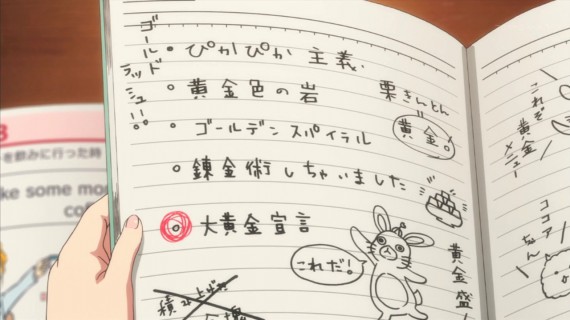 ゴールド
ラッシュ!!
・ぴかぴか主義
。黄金色の岩
。ゴールデンスパイラル
。錬金術しちゃいました
。大黄金宣言
栗きんとん
黄金。
これだ!
黄金盛
これぞ
黄金
メニュー
ココア
ちゃん
を飲みに行った時
ke some mo